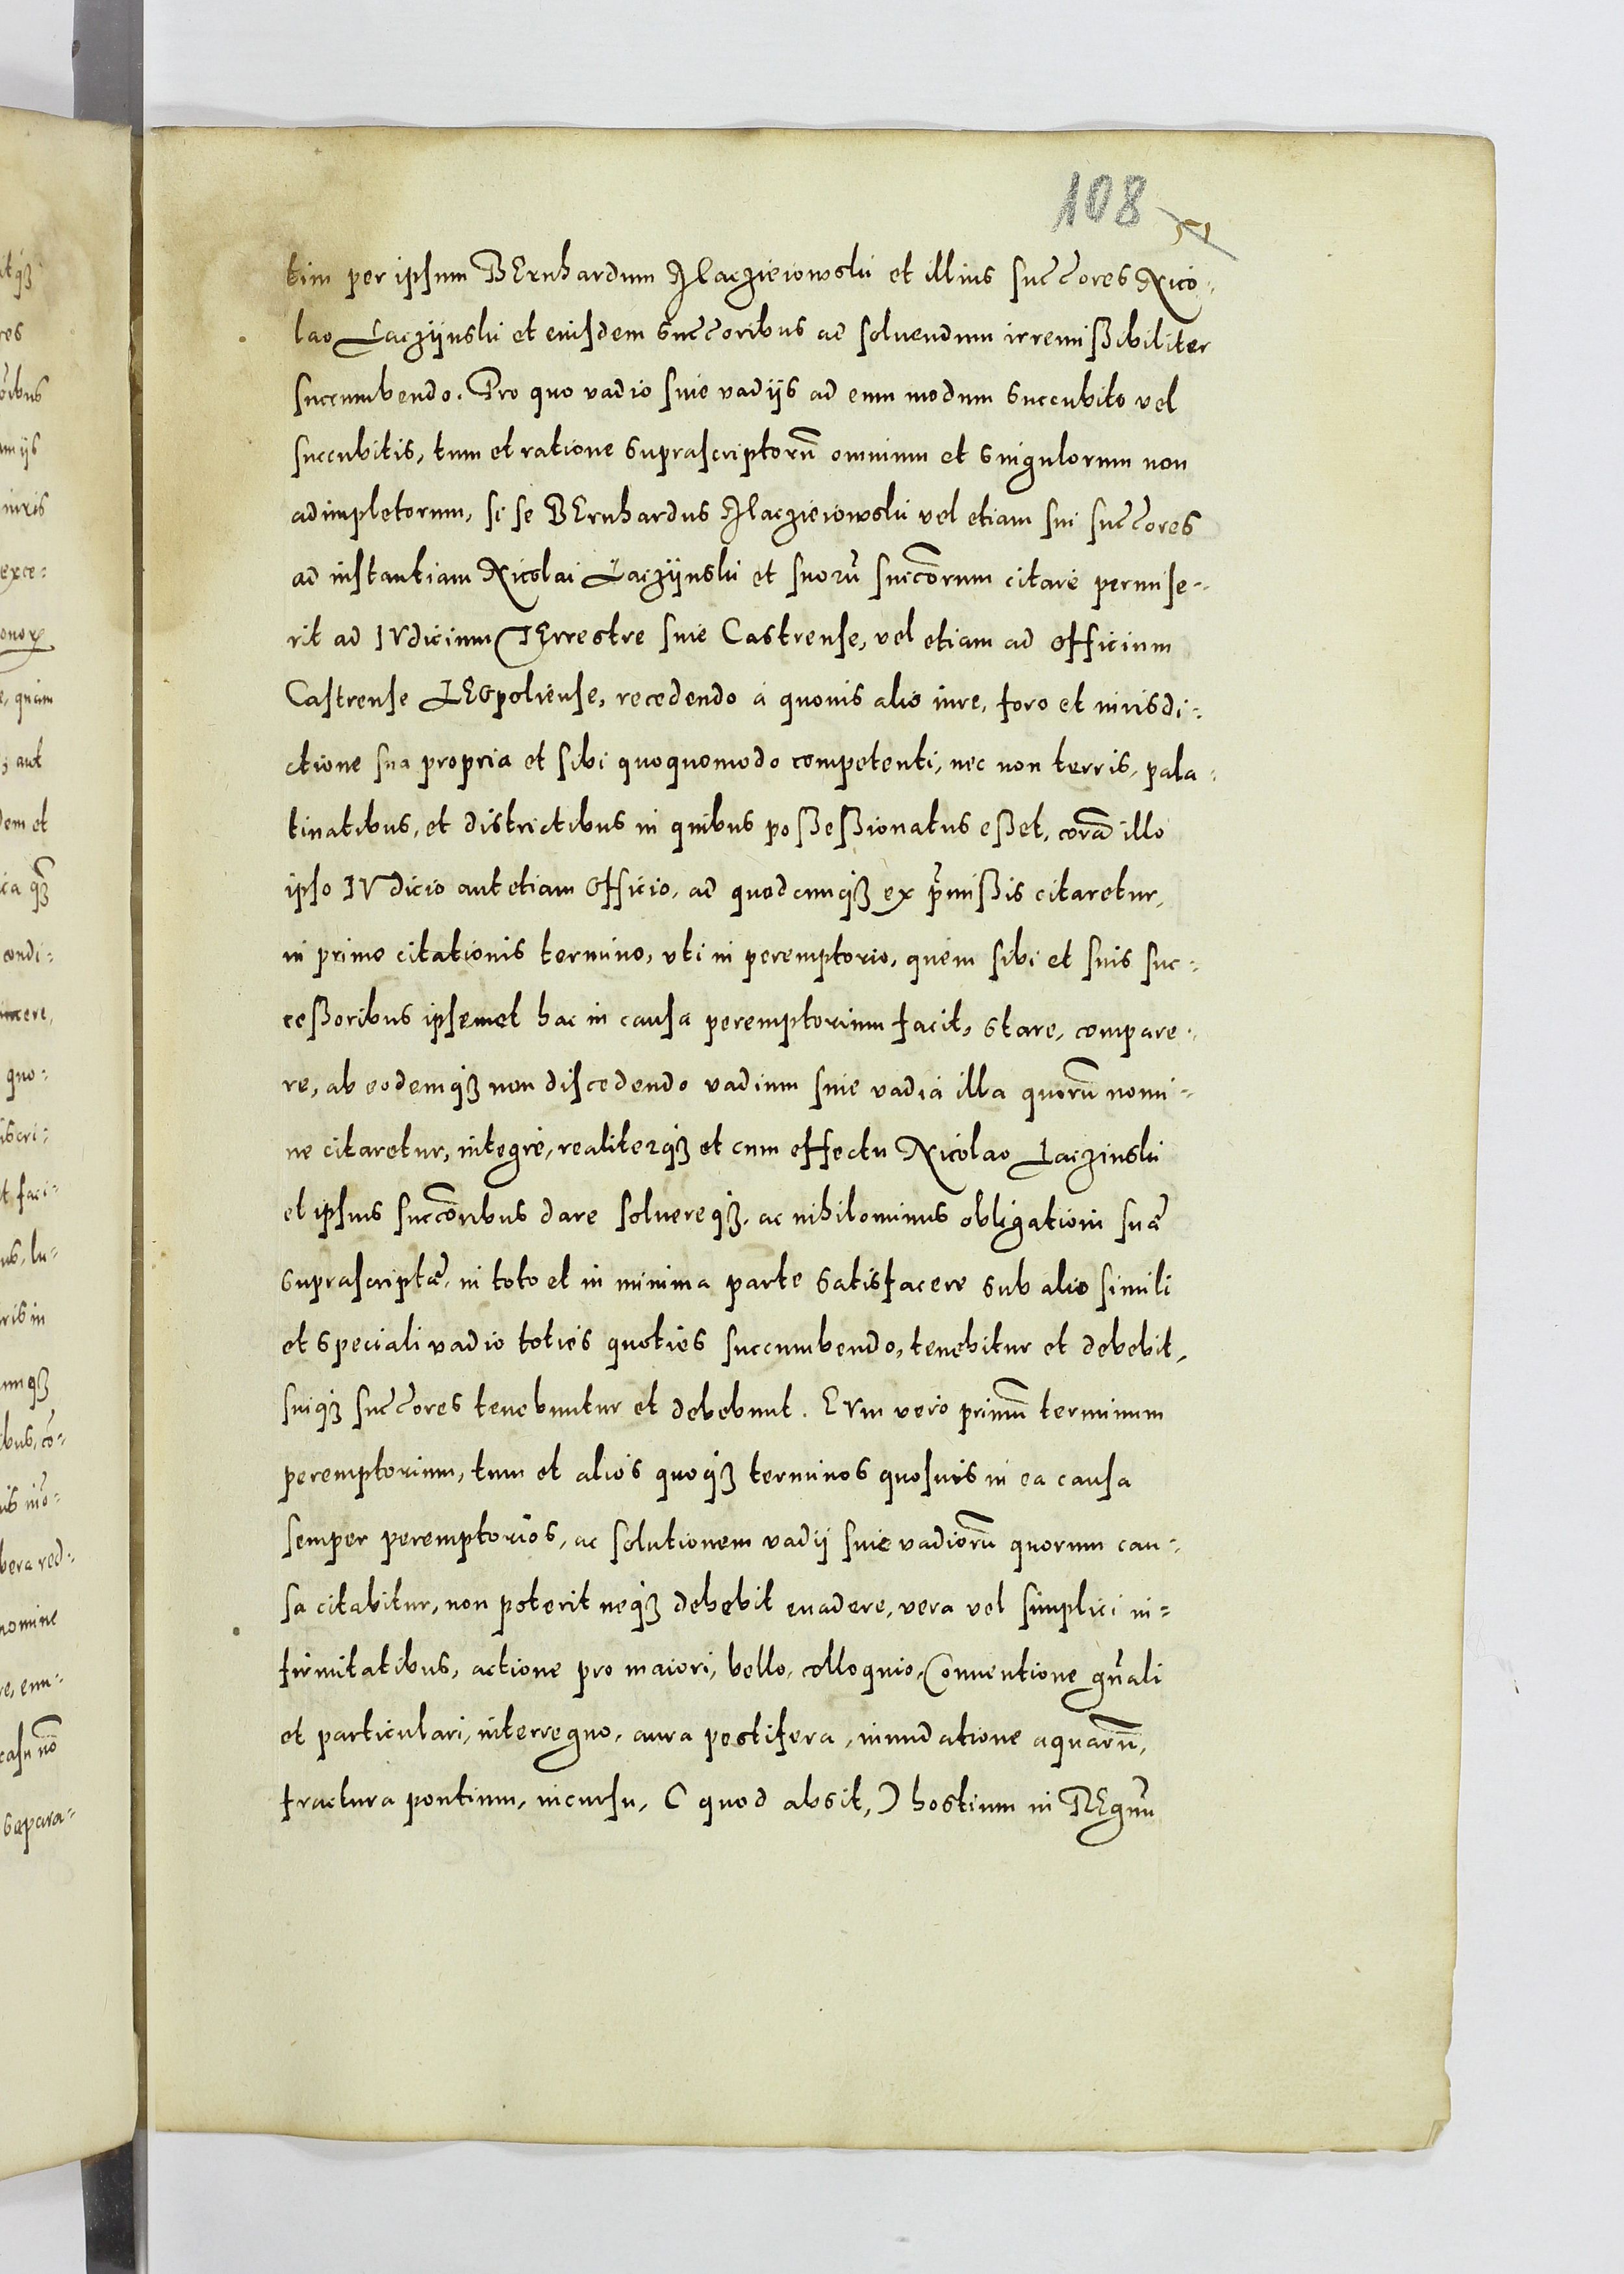 108
51
tim per ipsum BErnhardum Maczieiowski et illius succ̃ores Nico-
lao Laczÿnski et eiusdem succ̃oribus ad soluendum irremißibiliter
succumbendo. Pro quo vadio siue vadijs ad eum modum succubito vel
succubitis, tum et ratione suprascriptorũ omnium et singulorum non
adimpletorum, si se BErnhardus Maczieiowski vel etiam sui succ̃ores
ad instantiam Nicolai Laczÿnski et suorũ succõrum citare permise-
rit ad IVdicium TErrestre siue Castrense, vel etiam ad officium
Castrense LEOpoliense, recedendo à quouis alio iure, foro et iurisdi-
ctione sua propria et sibi quoquomodo competenti, nec non terris, pala-
tinatibus, et districtibus in quibus poßeßionatus eßet, corã illo
ipso IVdicio aut etiam Officio, ad quodcunqꝫ ex p̃mißis citaretur,
in primo citationis termino, vti in peremptorio, quem sibi et suis suc-
ceßoribus ipsemet hac in causa peremptorium facit, stare, compare-
re, ab eodemqꝫ non discedendo vadium siue vadia illa quorũ nomi-
ne citaretur, integrè, realiterqꝫ et cum effectu Nicolao Laczinski
et ipsius succõribus dare soluereqꝫ. ac nihilominus obligationi suæ
suprascriptæ, in toto et in minima parte satisfacere sub alio simili
et speciali vadio toties quoties succumbendo, tenebitur et debebit,
suiqꝫ succ̃ores tenebuntur et debebunt. EVm vero primũ terminum
peremptorium, tum et alios quoqꝫ terminos quosuis in ea causa
semper peremptorios, ac solutionem vadij siue vadiorũ quorum cau-
sa citabitur, non poterit neqꝫ debebit euadere, vera vel simplici in-
firmitatibus, actione pro maiori, bello, colloquio, Conuentione gñali
et particulari, interregno, aura pestifera, inundatione aquarũ,
fractura pontium, incursu, ( quod absit, ) hostium in REgnũ